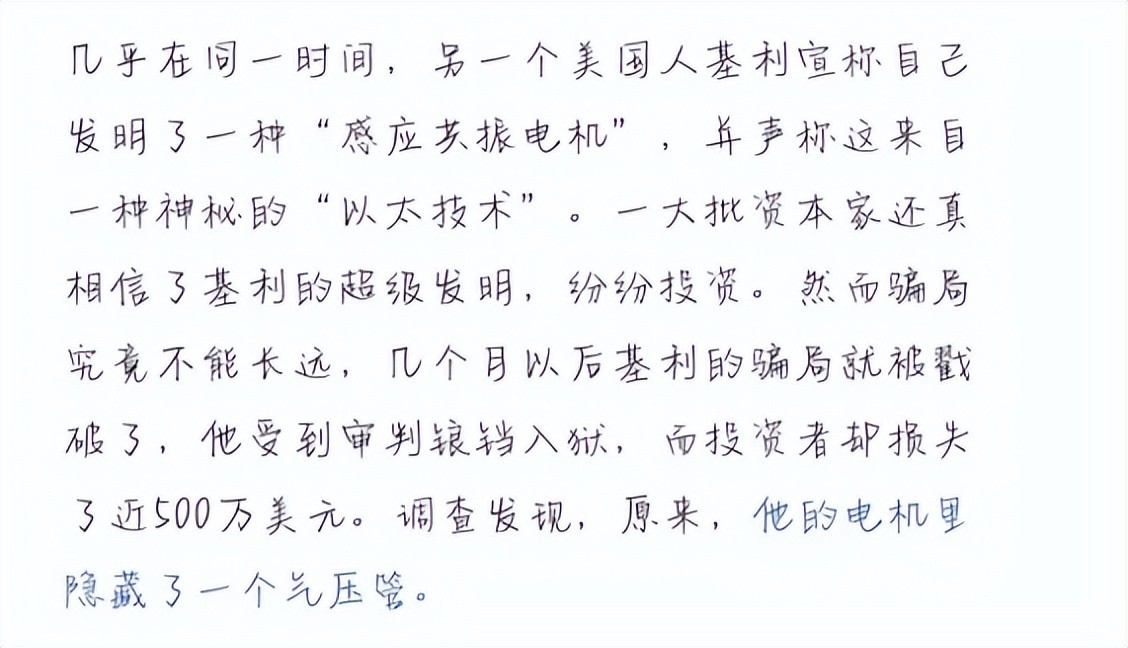 几乎在同一时间，另一个美国人基利宣称自己
发明了一种“感应共振电机”，并声称这来自
一种神秘的“以太技术”。一大批资本家还真
相信了基利的超级发明，纷纷投资。然而骗局
究竟不能长远，几个月以后基利的骗局就被戳
破了，他受到审判锒铛入狱，而投资者却损失
了近500万美元。调查发现，原来，他的电机里
隐藏了一个气压管。